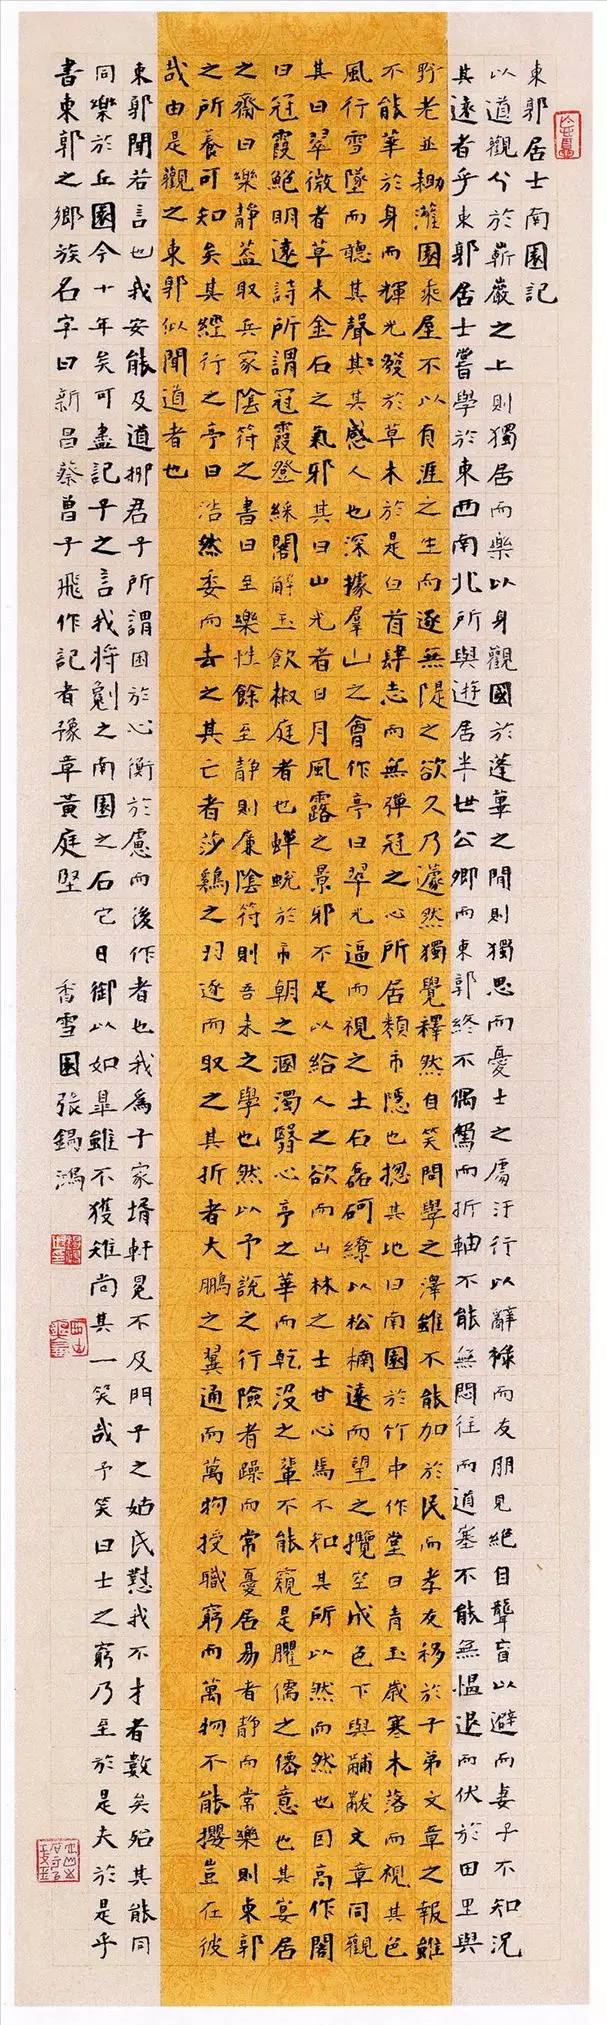 東郭居士南園記
以道觀兮於嶄巖之上則獨居而樂以身觀國於蓬蓽之間則獨思而憂士之處汙行以辭祿而友朋見絕自聾盲以避而妻子不知況
其遠者乎東郭居士嘗學於東西南北所與遊居半世公卿而東郭終不偶駕而折軸不能無悶往而道塞不能無慍退而伏於田里與
野老並耡灌園乘屋不以有涯之生而逐無隄之欲久乃蘧然獨覺釋然自笑問學之澤雖不能加於民而孝友移於子弟文章之報雖
不能華於身而輝光發於草木於是白首肆志而無彈冠之心所居類市隱也揔其地曰南園於竹中作堂曰青玉歲寒木落而視其色
風行雪墜而聽其聲其其感人也深據羣山之會作亭曰翠光逼而視之土石磊砢繚以松楠遠而望之攬空成色下與黼黻文章同觀
其曰翠微者草木金石之氣邪其曰山光者日月風露之景邪不足以給人之欲而山林之士甘心焉不知其所以然而然也因高作閣
曰冠霞鮑明遠詩所謂冠霞登綵閣解玉飲椒庭者也蟬蛻於市朝之溷濁翳心亭之華而乾沒之輩不能窺是臞儒之僊意也其宴居
之齋曰樂靜蓋取兵家陰符之書曰至樂性餘至靜則廉陰符則吾未之學也然以予說之行險者躁而常憂居易者靜而常樂則東郭
之所養可知矣其經行之亭曰浩然委而去之其亡者莎鷄之羽逐而取之其折者大鵬之翼通而萬物授職窮而萬物不能攖豈在彼
哉由是觀之東郭似聞道者也
東郭聞若言也我安能及道抑君子所謂困於心衡於慮而後作者也我為子家壻軒冕不及門子之姑氏懟我不才者數矣殆其能同
同樂於丘園今十年矣可盡記子之言我將劖之南園之石它日御以如皋雖不獲雉尚其一笑哉予笑曰士之窮乃至於是夫於是乎
書東郭之鄉族名字曰新昌蔡曾子飛作記者豫章黃庭堅 香雪園張錫鴻